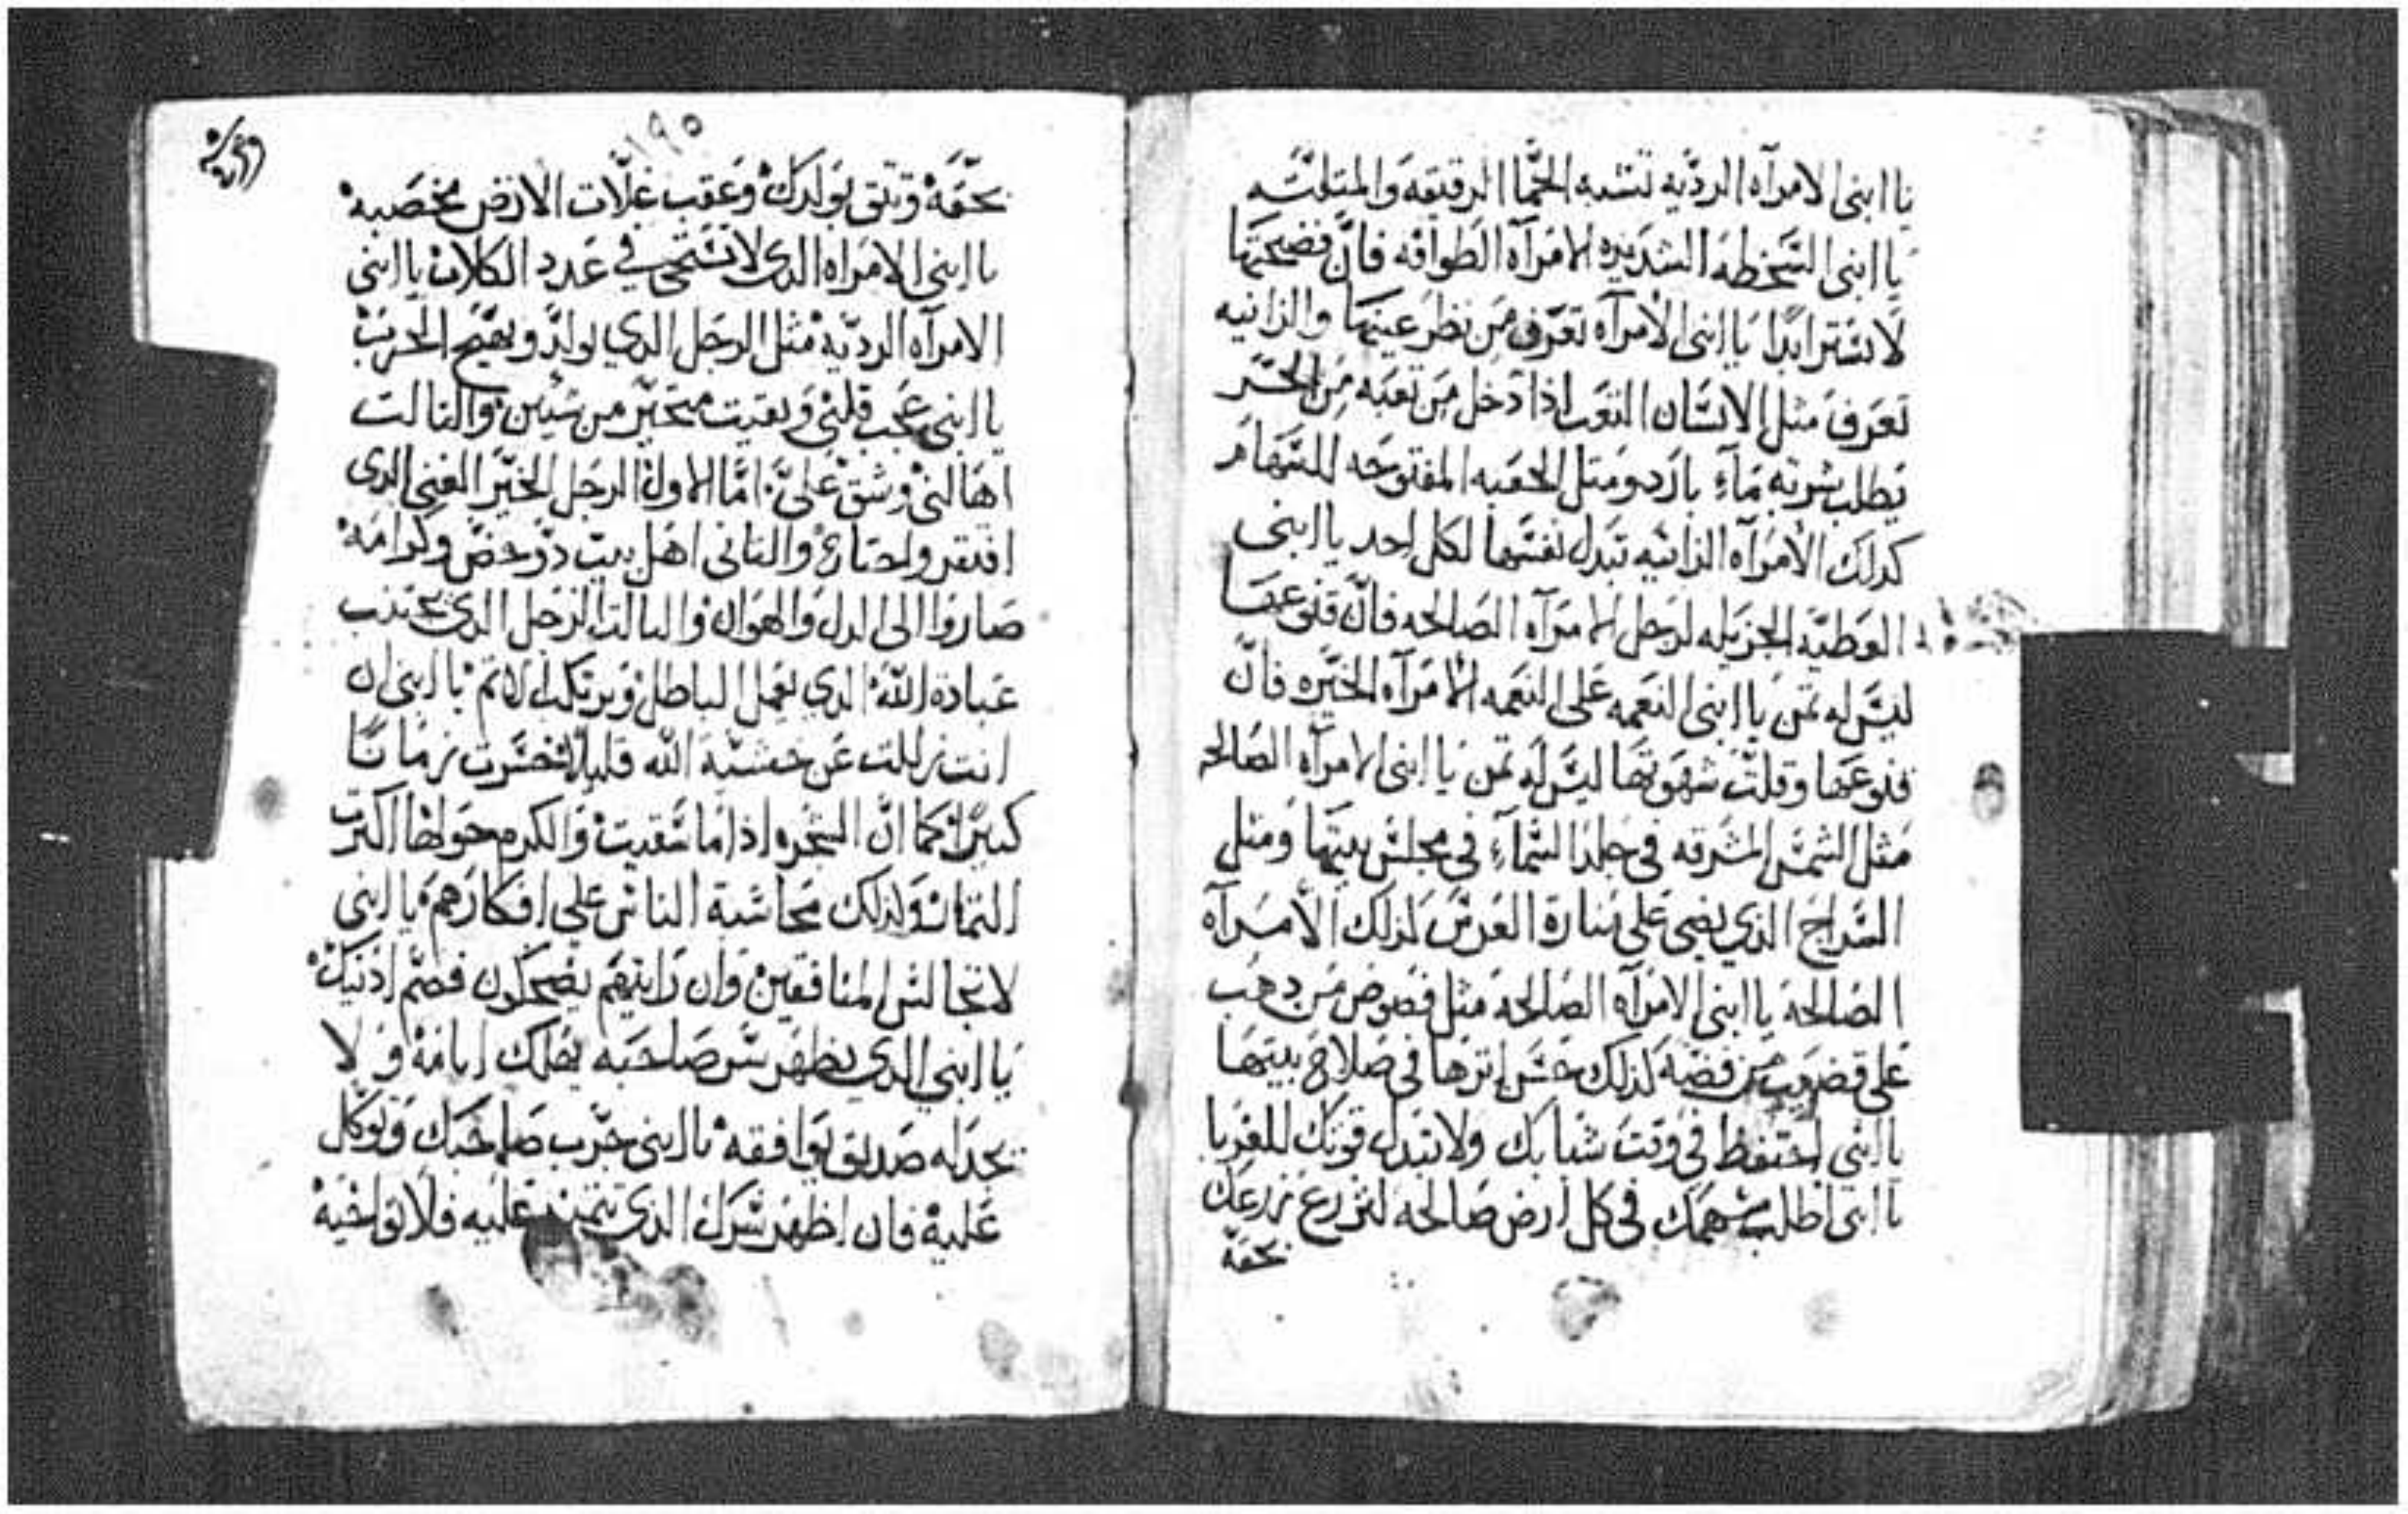 يا ابنى الامرآه الرديه تشبه الحما الرقيقه والمتلته
يا ابنى السخطه الشديده الامرآه الطوافه فان فضيحتها
لا تستر ابدا يا ابنى الامرآه تعرف من نظر عينيها والزانيه
تعرف مثل الانسان التعب اذا دخل من تعبه من الحر
يطلب شربة مآء بارد ومثل الجعبه المفتوحه للسهام
كدلك الامرآه الزانيه تبدل نفسها لكل احد يا ابنى
العطيه الجزيله لرجل الامرآه الصالحه فان
ليس له تمن يا ابنى النعمه على النعمه الامرآه الخيره فان
وقلت شهوتها ليس له تمن يا ابنى الامرآه الصالحه
مثل الشمس المشرقه فى جلد السمآء فى مجلس بيتها ومثل
السراج الذي يضى على منارة القدس كذلك الأمرآه
الصالحة يا ابنى الامرآه الصالحة مثل فصوص من دهب
على من فضه كذلك حسن اترها فى صلاح بيتها
يا ابنى احتفظ في وقت شبابك ولا تبدل قوتك للغربا
يا ابنى اطلب سهمك فى كل ارض صالحه لتزرع زرعك
بحقه
١٩٥
بحقه وتتق بولدك وعقب غلات الارض مخصبه
يا ابنى الامراه الدى لا تستحى في عدد الكلاب يا ابنى
الامرآه الرديه مثل الرجل الدي ويهيج الحرب
يا ابنى عجب قلبى وبقيت متحير من شيين والتالت
اهالنى وشق على اما الاول الرجل الخير الغنى الدى
افتقر واحتاج والتانى اهل بيت وكرامه
صاروا الى الدل والهوان والتالت الرجل الدى يجتنب
عبادة الله الدي يعمل الباطل ويرتكب الاتم يا ابنى ان
انت زللت عن خشية الله قليلا تخسرت زمانا
كبيرا كما ان الشجره اذا ما سقيت والكرم حولها اكترت
التمار ولذلك محاسبة الناس على افكارهم يا ابنى
لا تجالس المنافقين وان رايتهم يضحكون فصم اذنيك
يا ابنى الدي يظهر سر صاحبه يهلك ولا
يجد له صديق يوافقه يا ابنى جرب صاحبك وتوكل
عليه فان اظهر سرك الدى عليه فلا تواخيه